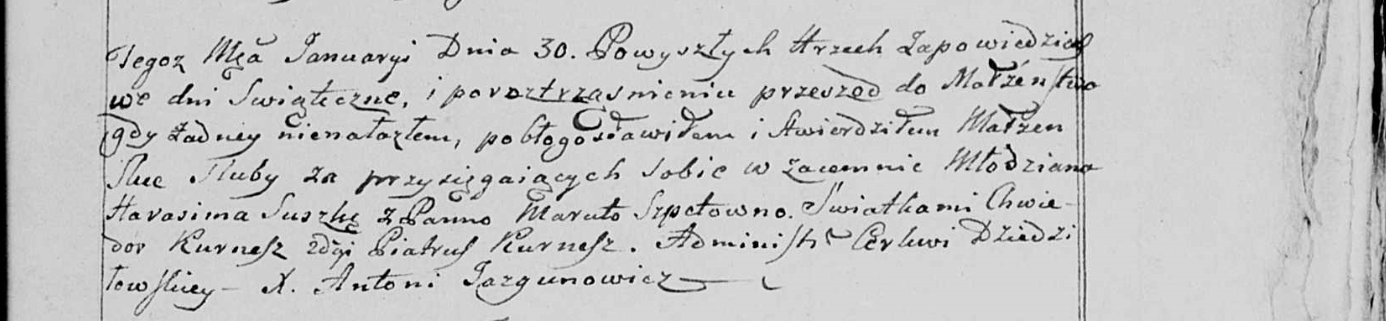 Tegoz Mca Januaryi Dnia 30. Powyszłych trzech Zapowiedziach
we dni Swiąteczne, i po roztrząsnieniu przeszod do Małżeństwa
gdy żadney nienalazłem, pobłogosławiłem i stwierdziłem Małżen
skie sluby za przysięgaiących sobie w zaiemnie Młodziana
Harasima Suszkę z Panno Maruto Szpetowno. Swiatkami Chwie-
dor Kurnesz 2dgi Piatrus Kurnesz. Administr Cerkwi Dziedzi
łowskiey – X. Antoni Jazgunowicz